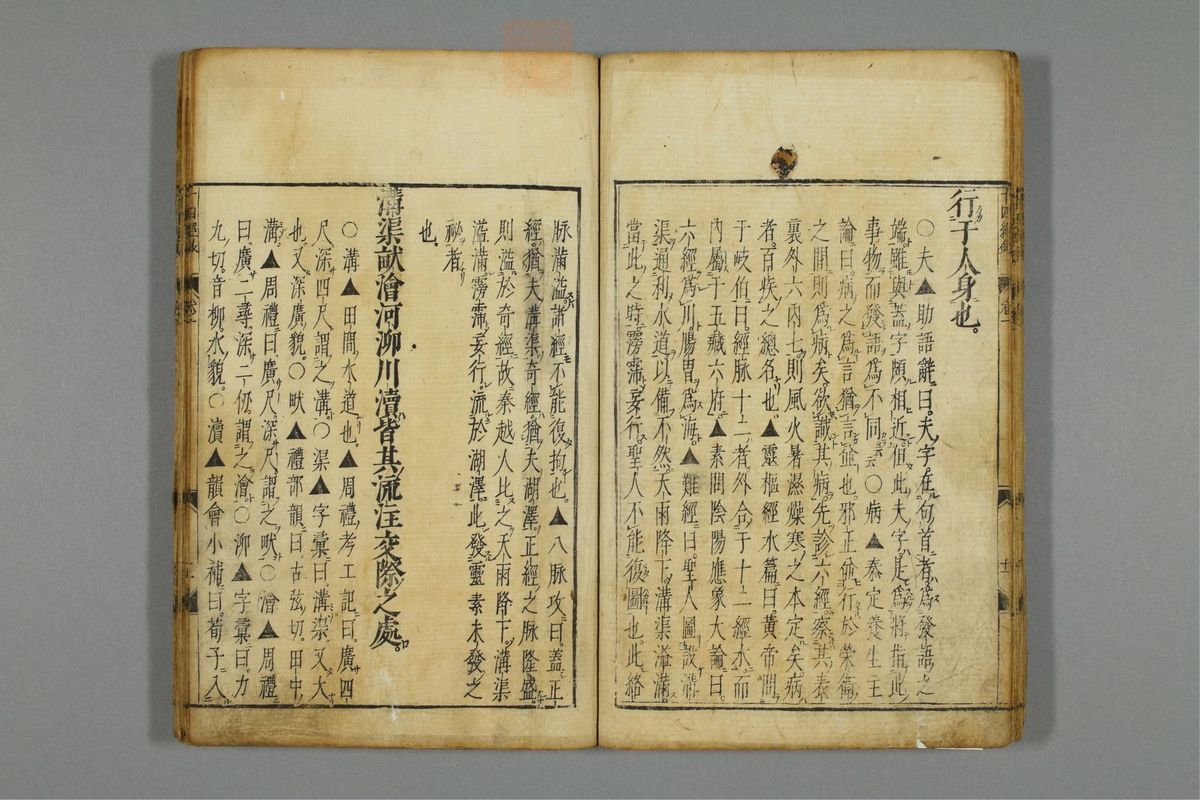 行于人身也。
○夫▲助語辭曰。夫字在句首者。爲發語之
端。雖與蓋字頗相近。但此夫字是爲將指此
事物而發語爲不同云。○病▲泰定養生主
論曰。病之爲言猶言並也。邪正並行於榮衞
之間則爲病矣。欲識其病。先診六經。察其表
裏。外六内七。則風火暑濕燥寒之本定矣。病
者。百疾之總名也。▲靈樞經水篇曰。黄帝問
于岐伯曰。經脉十二者。外合于十二經水。而
内屬于五藏六府。▲素問陰陽應象大論曰。
六經爲川。腸胃爲海。▲難經曰。聖人圖設溝
渠。通利水道。以備不然。天雨降下。溝渠溢滿。
當此之時。霶霈妄行。聖人不能復圖也。此絡
脉滿溢。諸經不能復拘也。▲八脉攷曰。蓋正
經。猶夫溝渠。奇經。猶夫湖澤。正經之脉隆盛。
則溢於奇經。故秦越人比之。天雨降下。溝渠
溢滿。霶霈妄行。流於湖澤。此發靈素未發之
祕者
也。
溝渠畎澮河泖川瀆皆其流注交際之處。
○溝▲田間水道也。▲周禮考工記曰。廣四
尺深四尺。謂之溝。○渠▲字彙曰。溝渠。又大
也。又深廣貌。○畎▲禮部韻曰。古弦切。田中
溝。▲周禮曰。廣尺深尺。謂之畎。○澮▲周禮
曰。廣二尋。深二仭。謂之澮。○泖▲字彙曰。力
九切。音柳。水貌。○瀆▲韻會小補曰。荀子。入